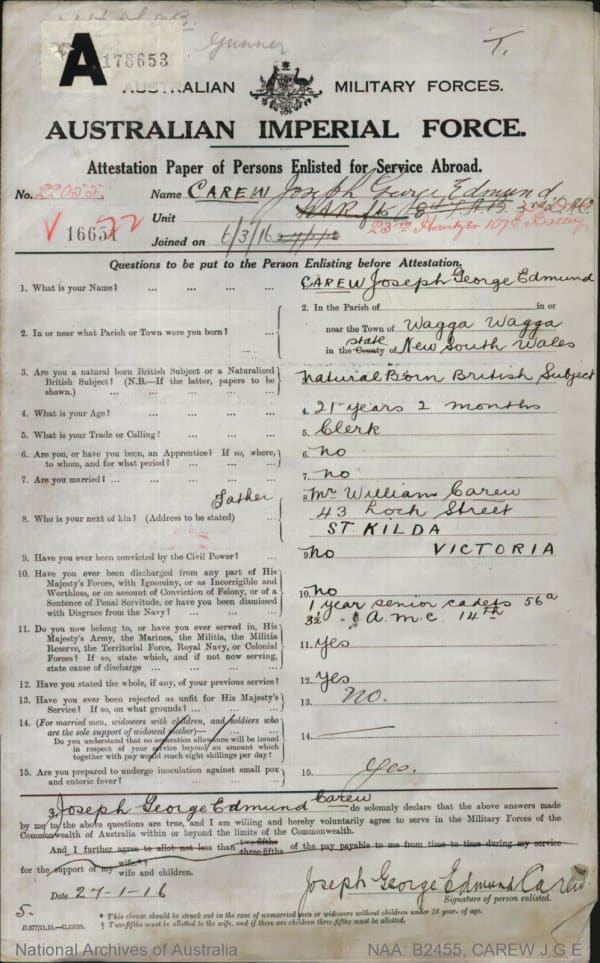 Gunner
T.
A 178653
AUSTRALIAN MILITARY FORCES.
AUSTRALIAN IMPERIAL FORCE.
Attestation Paper of Persons Enlisted for Service Abroad.
No. 22055 Name CAREW Joseph George Edmund
Unit
23rd Howitzer 107th Battery
16651 Joined on 6/3/16
Questions to be put to the Person Enlisting before Attestation.
1. What is your Name? ... ... ... ... CAREW Joseph George Edmund
2. In or near what Parish or Town were you born? ... 2. In the Parish of in or
near the Town of Wagga Wagga
in the County state of New South Wales
3. Are you a natural born British Subject or a Naturalized British Subject? (N.B.—If the latter, papers to be shown.) ... ... ... ... ... Natural Born British Subject
4. What is your Age? ... ... ... ... 4. 21 years 2 months
5. What is your Trade or Calling? ... ... ... 5. Clerk
6. Are you, or have you been, an Apprentice? If so, where, to whom, and for what period? ... ... ... 6. no
7. Are you married? ... ... ... ... 7. no
8. Who is your next of kin? (Address to be stated) ... Father 8. Mr William Carew
43 Loch Street
ST KILDA
VICTORIA
9. Have you ever been convicted by the Civil Power? ... 9. no
10. Have you ever been discharged from any part of His Majesty's Forces, with Ignominy, or as Incorrigible and Worthless, or on account of Conviction of Felony, or of a Sentence of Penal Servitude, or have you been dismissed with Disgrace from the Navy? ... ... ... 10. no
1 year senior cadets 56a
3½ " A.M.C. 14th
11. Do you now belong to, or have you ever served in, His Majesty's Army, the Marines, the Militia, the Militia Reserve, the Territorial Force, Royal Navy, or Colonial Forces? If so, state which, and if not now serving, state cause of discharge ... ... ... 11. yes
12. Have you stated the whole, if any, of your previous service? 12. yes
13. Have you ever been rejected as unfit for His Majesty's Service? If so, on what grounds? ... ... ... 13. no.
14. (For married men, widowers with children, and soldiers who are the sole support of widowed mother)—
Do you understand that no separation allowance will be issued in respect of your service beyond an amount which together with pay would reach eight shillings per day? 14.
15. Are you prepared to undergo inoculation against small pox and enteric fever? ... ... ... ... 15. Yes.
I, Joseph George Edmund Carew do solemnly declare that the above answers made
by me to the above questions are true, and I am willing and hereby voluntarily agree to serve in the Military Forces of the
Commonwealth of Australia within or beyond the limits of the Commonwealth.
And I further agree to allot not less than two-fifths three-fifths of the pay payable to me from time to time during my service
for the support of my wife* wife and children.
Date 27-1-16 Joseph George Edmund Carew
Signature of person enlisted.
5.
* This clause should be struck out in the case of unmarried men or widowers without children under 18 year. of age.
† Two-fifths must be allotted to the wife, and if there are children three-fifths must be allotted.
National Archives of Australia NAA: B2455, CAREW J G E